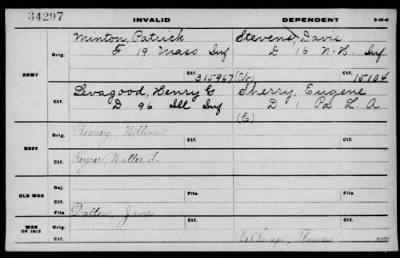 34297
INVALID
DEPENDENT
Minton, Patrick
Stevens, Davis
ARMY
Orig.
F 19 Mass Inf
D 16 N.H. Inf
Ctf.
315967
15104
Levagood, Henry G
Sherry, Eugene
D 96 Ill Inf
D 1 Pa L. A
Ctf.
NAVY
Orig.
Rooney, William
Ctf.
Walter
OLD WAR
Rej.
Ctf.
File
Ctf.
File
WAR OF 1812
Orig.
Dalton, James
Ctf.
Ctf.
Thomas